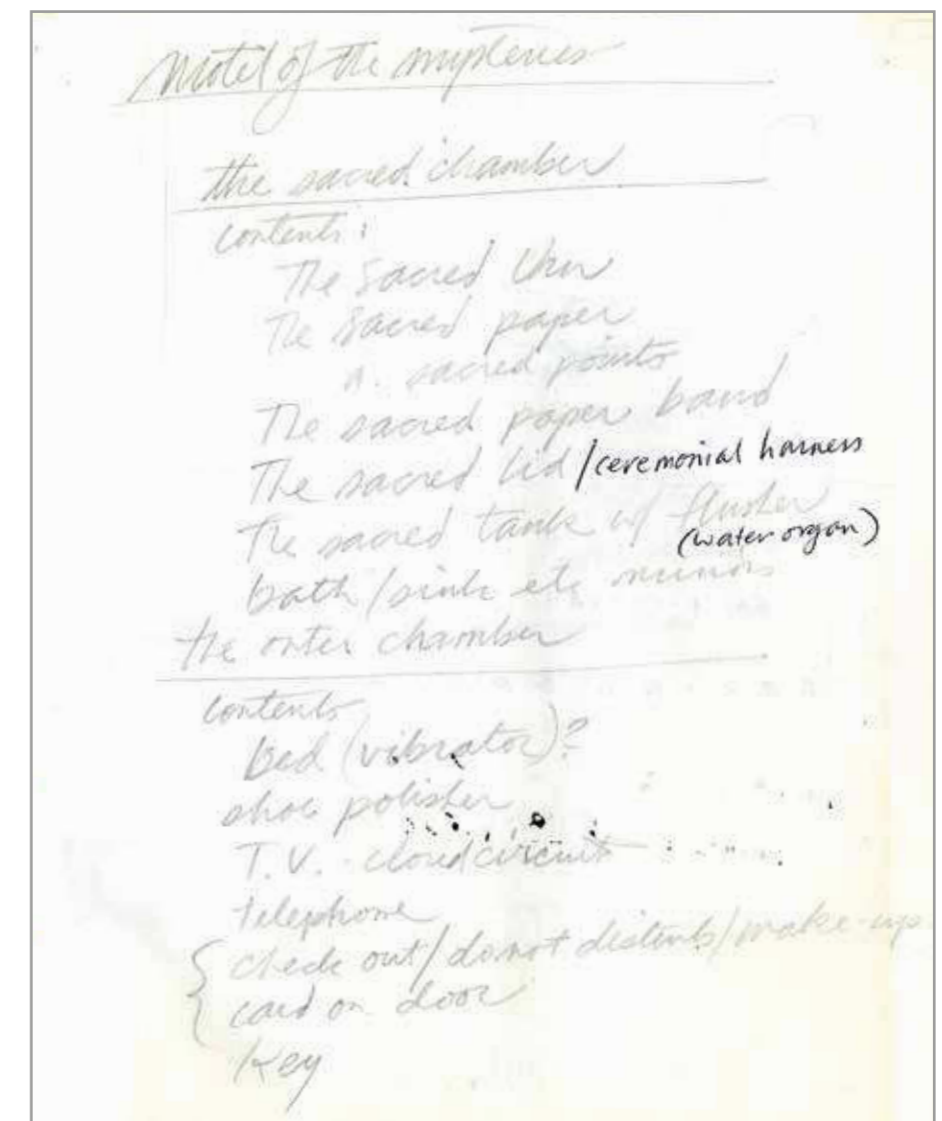 Motel of the mysteries
the sacred chamber
contents:
The Sacred Urn
The Sacred paper
a. sacred points
The sacred paper band
The sacred lid /ceremonial harness
The sacred tank w/ flusher
(water organ)
bath/sink etc mirrors
the outer chamber
contents
bed (vibrator)?
shoe polisher
T.V. closed circuit
telephone
check out/do not disturb/make-up
card on door
Key